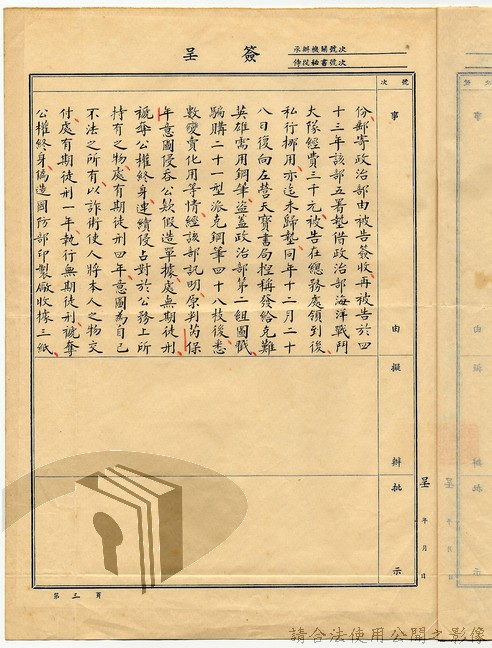 簽呈
承辦機關號次
侍從秘書號次
號次
事由
擬辦
批示
份郵寄政治部由被告簽收再被告於四
十三年該部五署墊借政治部海洋戰鬥
大隊經費三千元被告在總務處領到後
私行挪用亦迄未歸墊同年十二月二十
八日復向左營兵寶書局控稱發給克難
英雄需用鋼筆盜蓋政治部第二組圖戳
騙購二十一型派克鋼筆四十八枝後悉
數變賣化用等情經該部訊明原判芮保
年意圖侵吞公款假造單據處無期徒刑
褫奪公權終身連續侵占對於公務上所
持有之物處有期徒刑四年意圖為自己
不法之所有以詐術使人將本人之物交
付處有期徒刑一年執行無期徒刑褫奪
公權終身偽造國防部印製廠收據三紙
呈
年月日
第三頁
請合法使用公開之影像